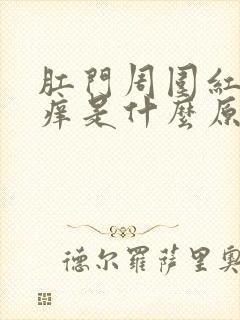 肛門周围紅
痒是什麼原
德尔羅萨里奥